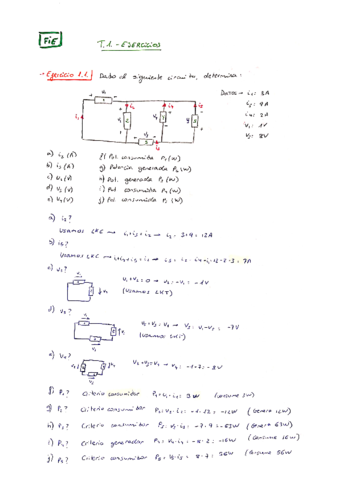 FiE
T.1.- EJERCICIOS
→ Ejercicio 1.1. Dado el siguiente circuito, determina:
DATOS → i₁: 3A
i₃: 9A
i₄: 2A
V₁: 1V
V₅: 8V
a) i₂ (A) f) Pot. consumida P₁ (W)
b) i₅ (A) g) Potencia generada P₂ (W)
c) V₂ (V) h) Pot. generada P₃ (W)
d) V₃ (V) i) Pot. consumida P₄ (W)
e) V₄ (V) j) Pot. consumida P₅ (W)
a) i₂?
Usamos LKC → i₁+i₃ = i₂ → i₂ = 3+9 = 12A
b) i₅?
Usamos LKC →
c) V₂?
V₁+V₂ = 0 → V₂ = -V₁ = -1V
(Usamos LKT)
d) V₃?
(Usamos LKT)
e) V₄?
f) P₁? Criterio consumidor P₁ = V₁·i₁ = 3W (Consume 3W)
g) P₂? Criterio consumidor P₂ = V₂·i₂ = -1·12 = -12W (Genera 12W)
h) P₃? Criterio consumidor P₃ = V₃·i₃ = -7·9 = -63W (Genera 63W)
i) P₄? Criterio generador P₄ = V₄·i₄ = -8·2 = -16W (Consume 16W)
j) P₅? Criterio consumidor P₅ = V₅·i₅ = 8·7 = 56W (Consume 56W)